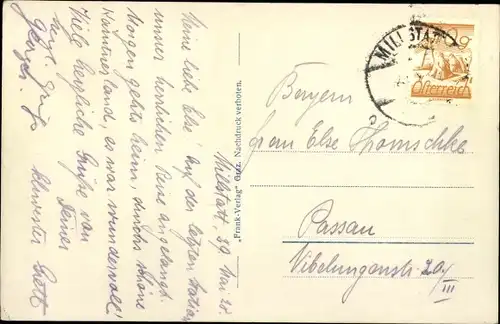 Millstatt, 29. Mai 28.
Meine liebe Else! Auf der letzten Station
unser herrlichen Reise angelangt.
Morgen gehts heim, durchs schöne
Kärntnerland, es war wundervoll!
Viele herzliche Grüße von
Deiner
Schwester Gretl
herzl. Grüße
Georges.
"Frank-Verlag" Graz. Nachdruck verboten.
MILLSTATT
Österreich
Bayern
Frau Else Thomschke
Passau
Nibelungenstr. 20/III